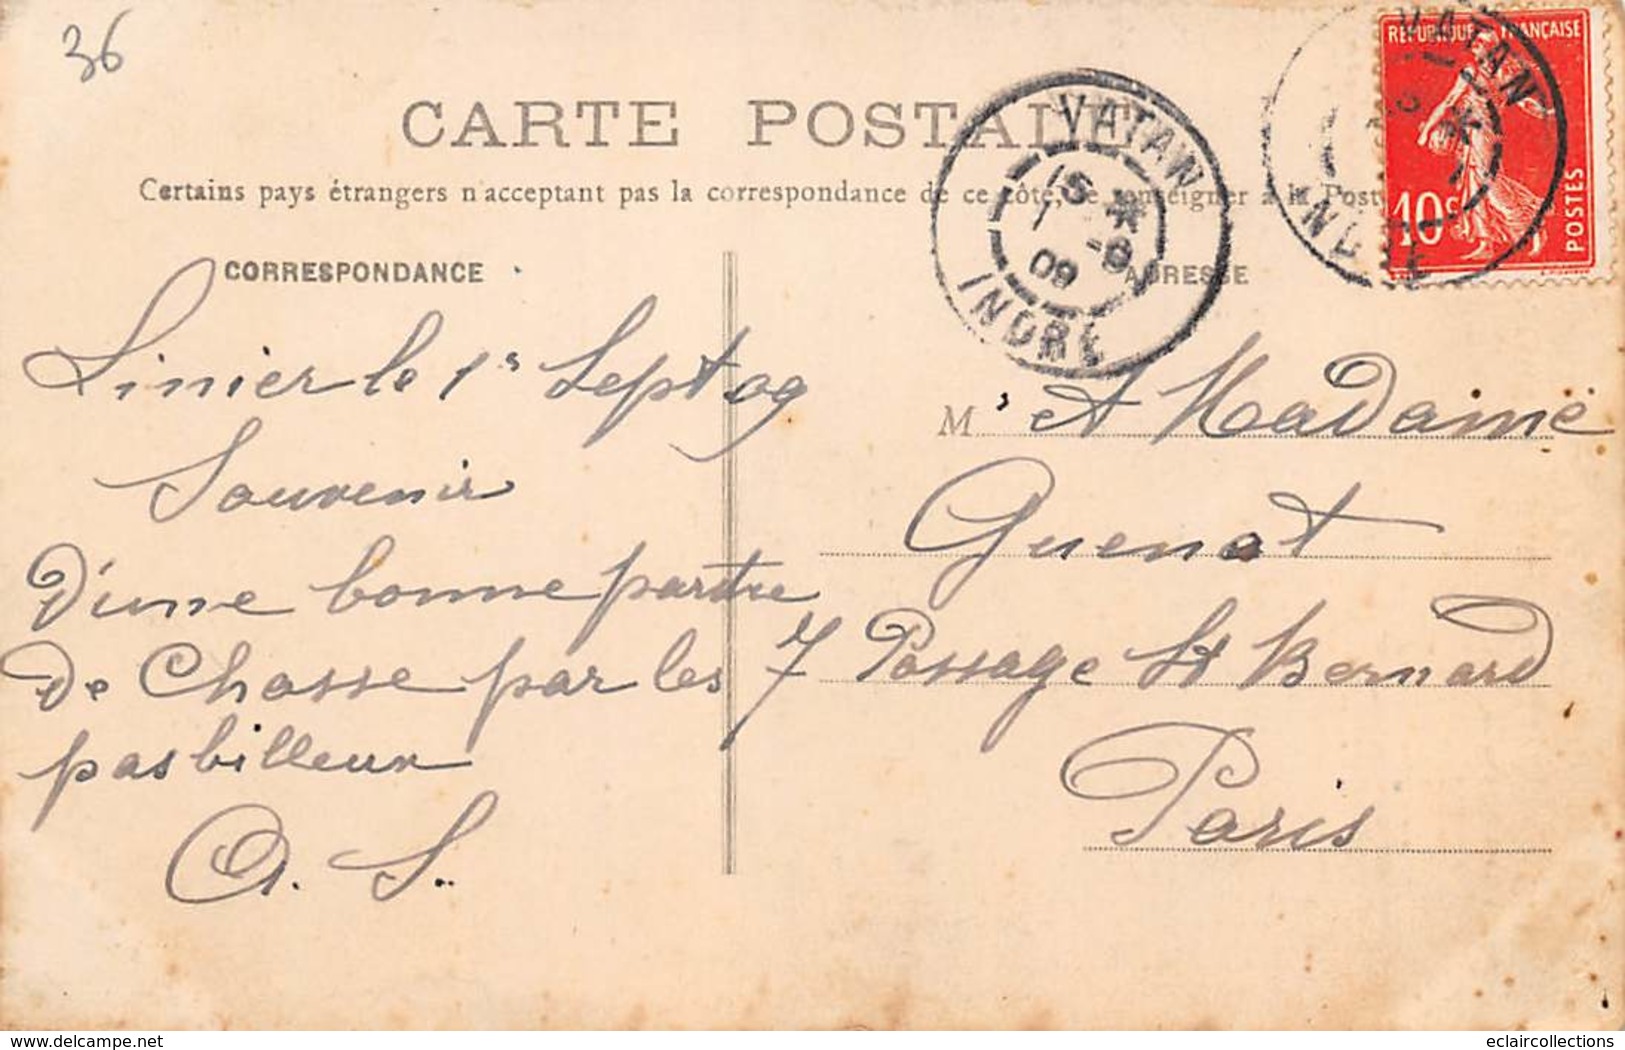 36
CARTE POSTALE
Certains pays étrangers n'acceptant pas la correspondance de ce côté, se renseigner à la Poste
CORRESPONDANCE
ADRESSE
VATAN
15 *
1 -9
09
INDRE
VATAN
INDRE
REPUBLIQUE FRANÇAISE
10c
POSTES
Linier le 1r Sept 09
Souvenir
D'une bonne partie
De Chasse par les
pasbilleux
A. S.
M
A Madame
Guenot
7 Passage St Bernard
Paris
www.delcampe.net
eclaircollections